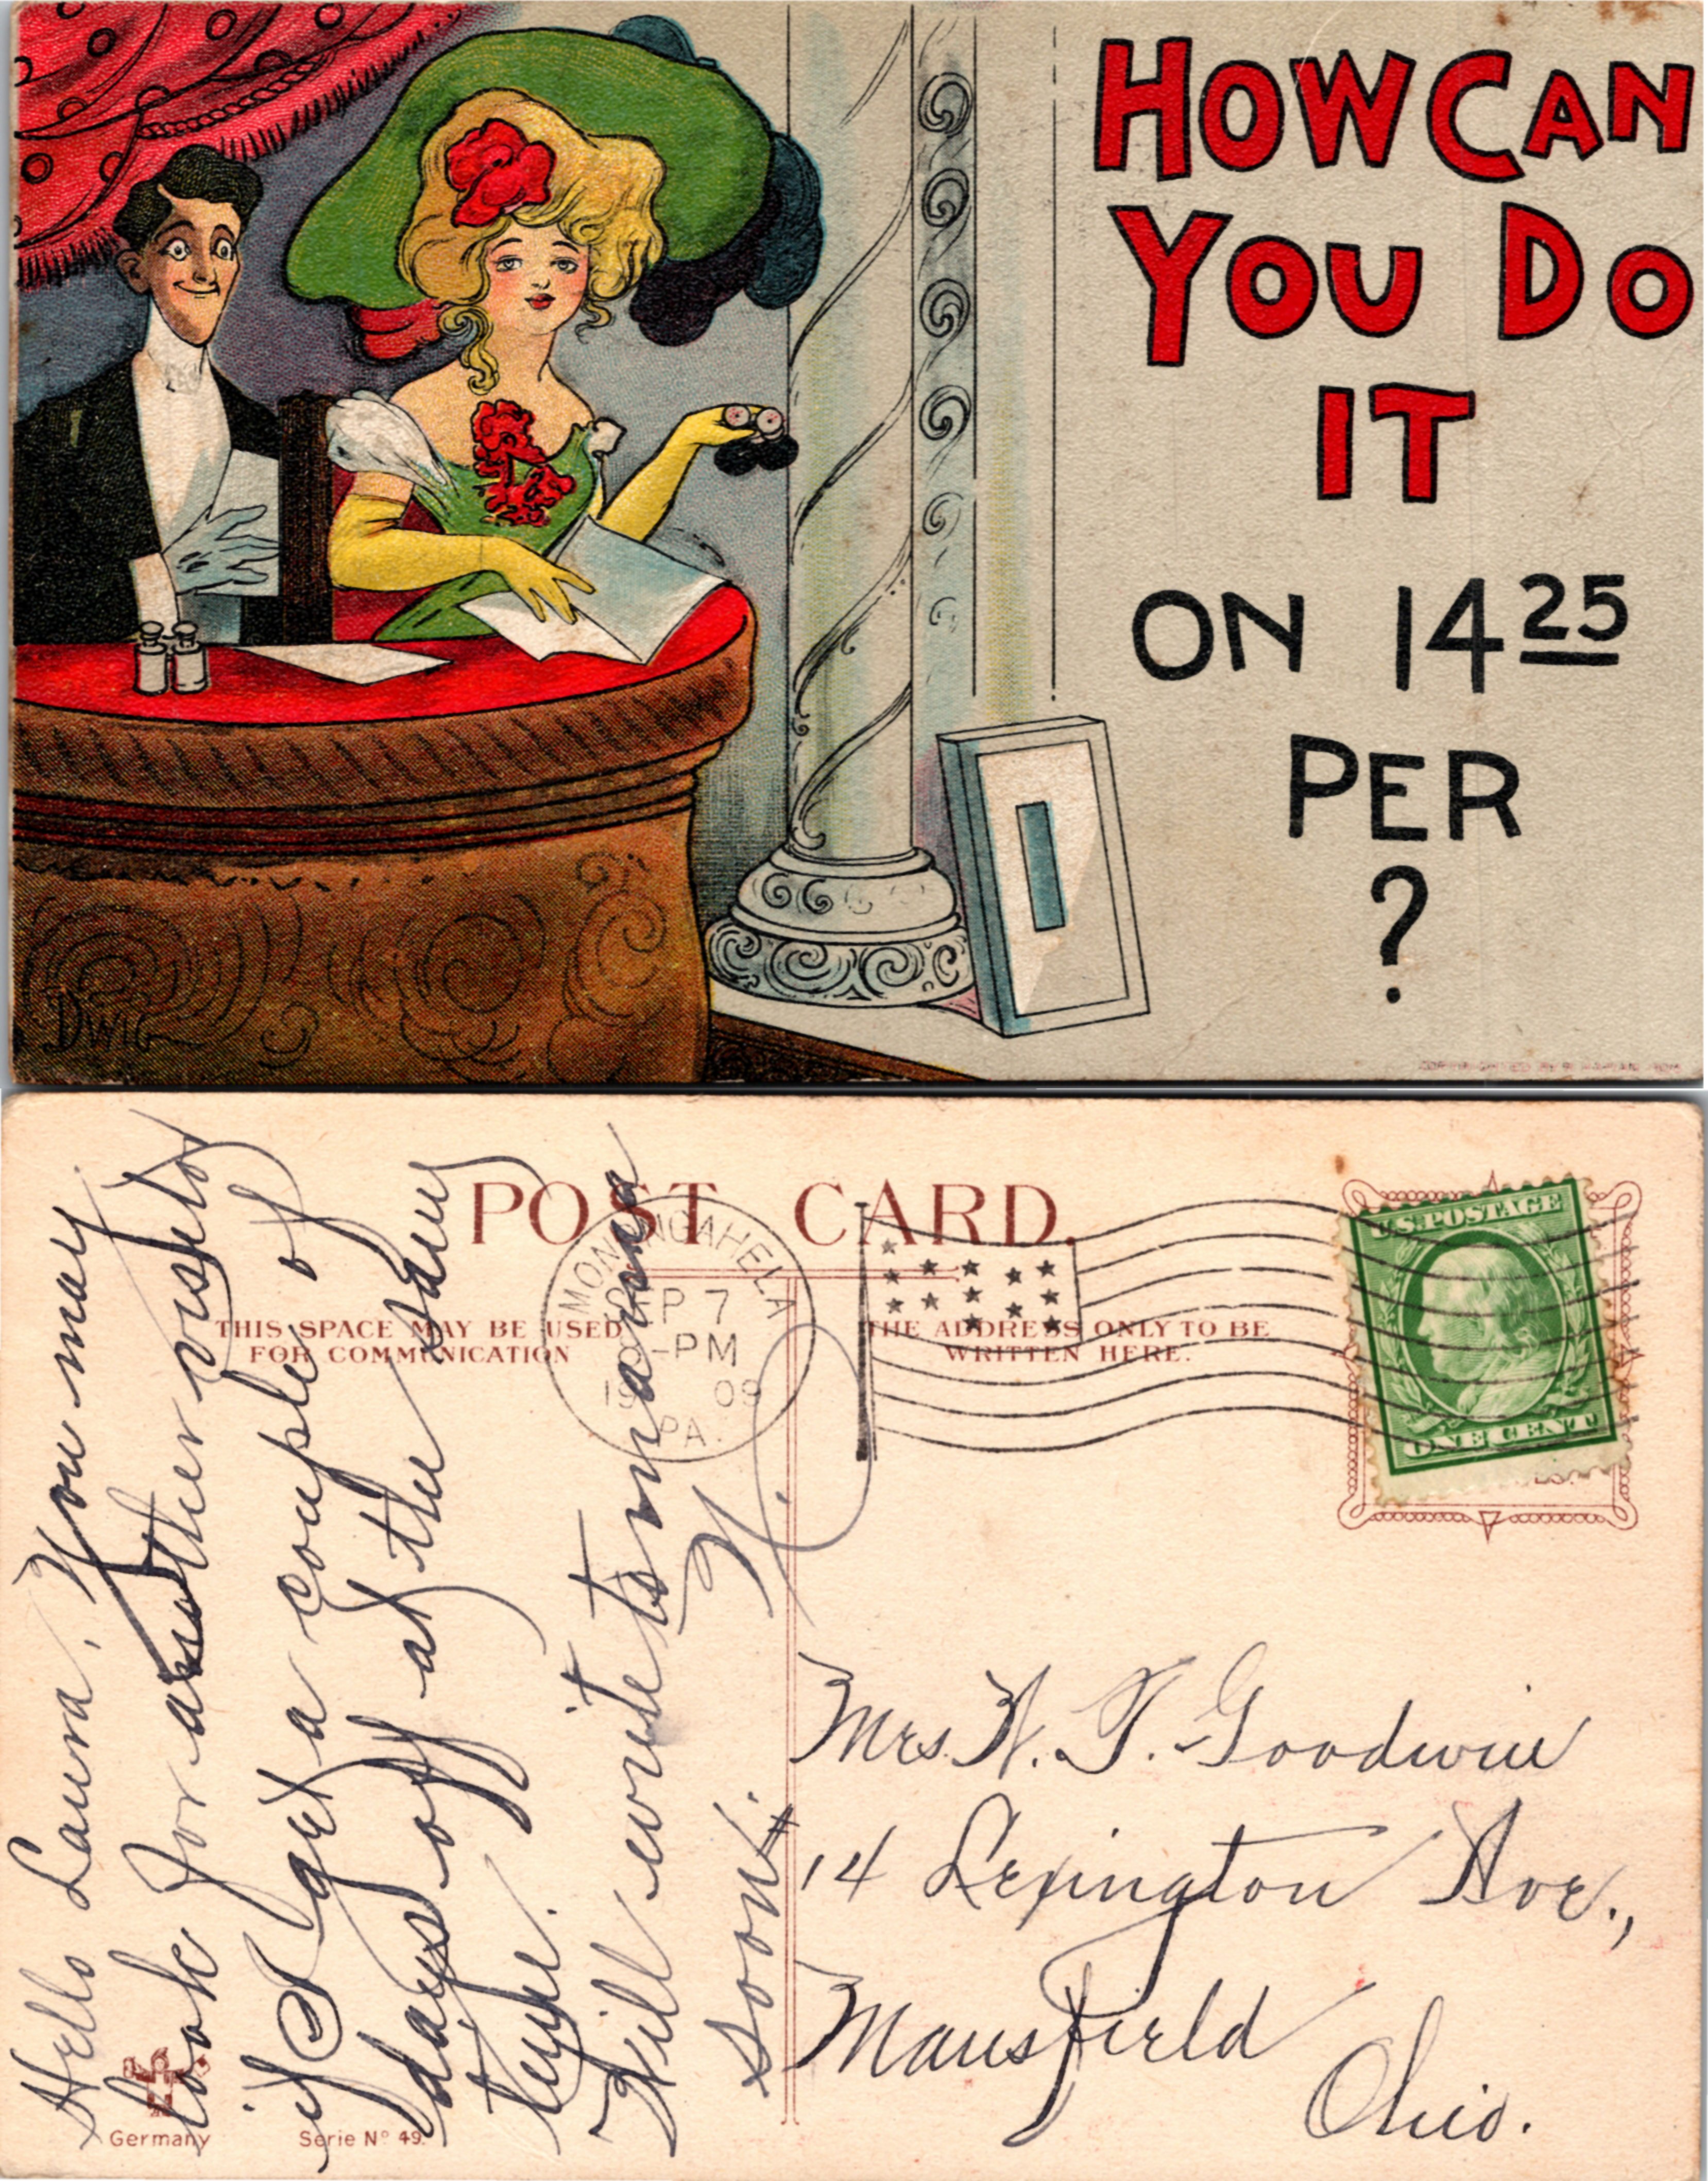 HOW CAN
YOU DO
IT
ON 14 25
PER
?
DWIG
POST CARD.
THIS SPACE MAY BE USED
FOR COMMUNICATION
THE ADDRESS ONLY TO BE
WRITTEN HERE.
MONONGAHELA
SEP 7
-PM
1909
PA.
U.S. POSTAGE
ONE CENT
Hello Laura. You may
look for another visitor
if I get a couple of
days off at the same
time.
Will write mama
soon.
N.
Mrs. N. T. Goodwin
14 Lexington Ave.,
Mansfield
Ohio.
Germany
Serie Nº 49.